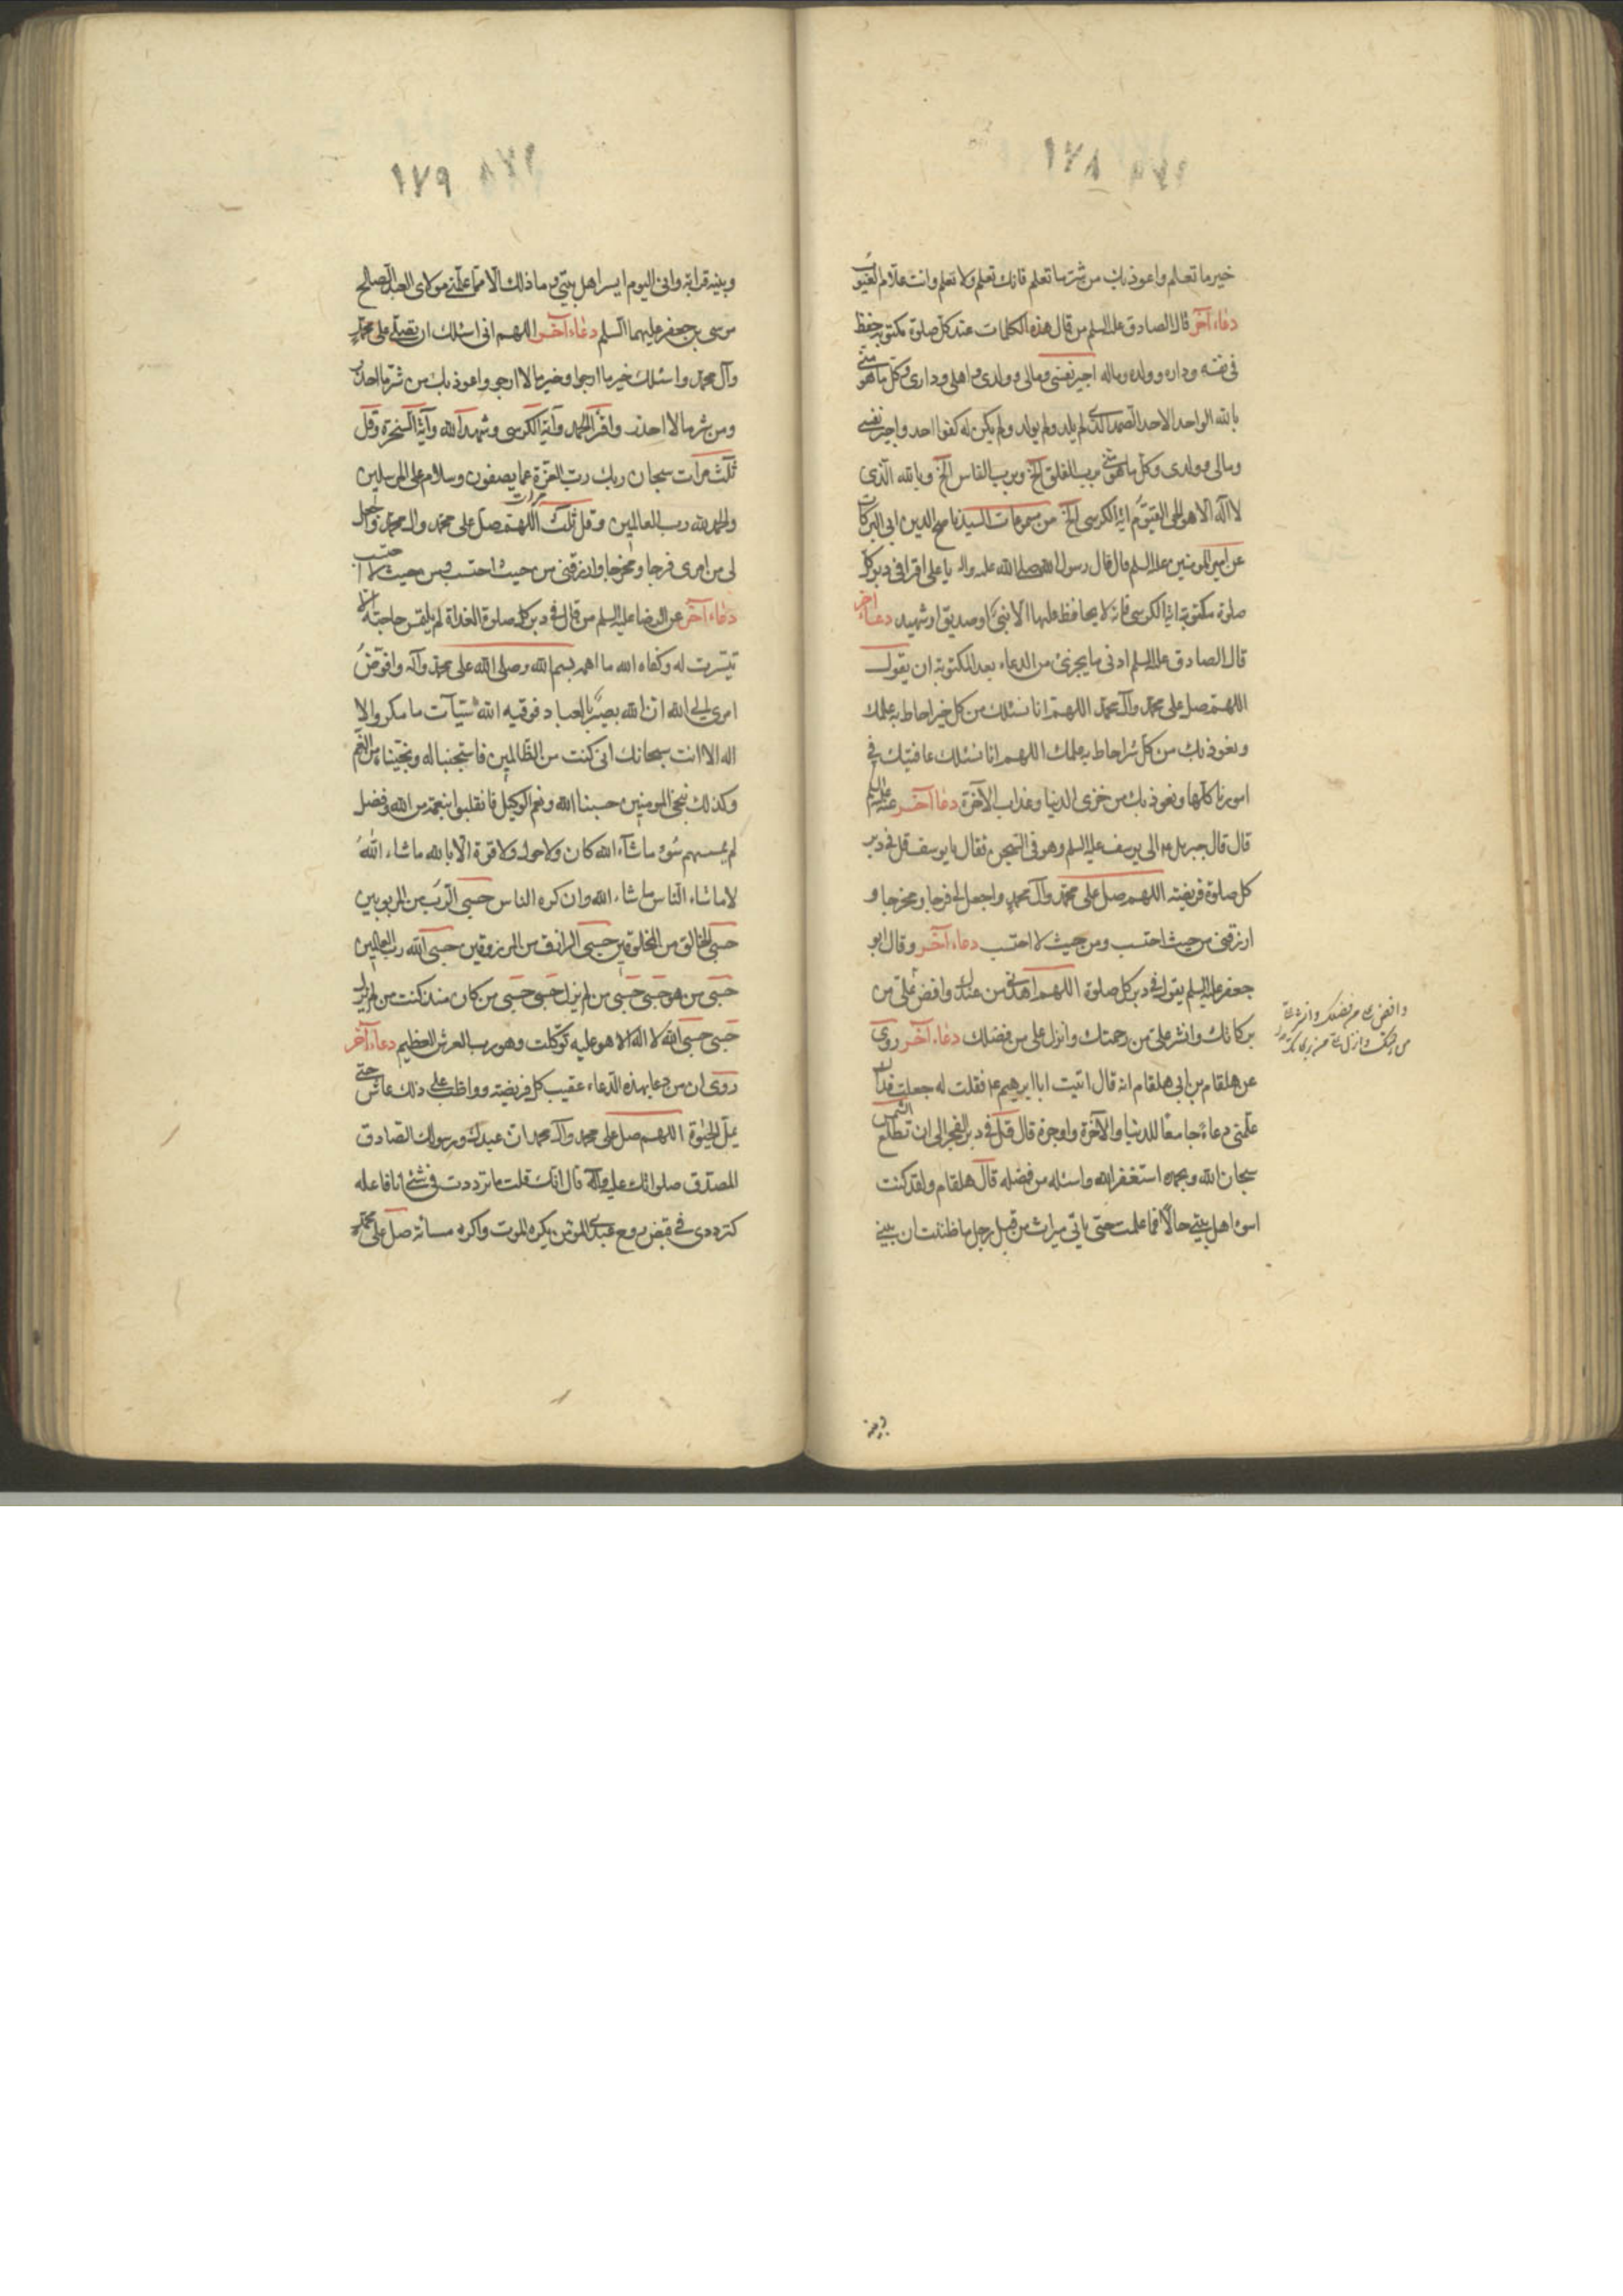 ١٧٨
خير ما تعلم واعوذ بك من شر ما تعلم فانك تعلم ولا نعلم وانت علام الغيوب
دعاء آخر قال الصادق عليه السلم من قال هذه الكلمات عند كل صلوة مكتوبة حفظ
في نفسه وداره وولده وماله اجير نفسي ومالي وولدي واهلي وداري وكل ما هو مني
بالله الواحد الاحد الصمد الذي لم يلد ولم يولد ولم يكن له كفوا احد واجير نفسي
ومالي وولدي وكل ما هو مني برب الفلق الخ وبرب الناس الخ وبالله الذي
لا آله الا هو الحي القيوم اية الكرسي الخ من مسموعات السيد ناصح الدين ابي البركات
عن امير المومنين عليه السلم قال قال رسول الله صلى الله عليه واله يا علي اقرا في دبر كل
صلوة مكتوبة اية الكرسي فانه لا يحافظ عليها الا نبي او صديق او شهيد دعاء آخر
قال الصادق عليه السلم ادنى ما يجزئ من الدعاء بعد المكتوبة ان يقول
اللهم صل على محمد وآل محمد اللهم انا نسئلك من كل خير احاط به علمك
ونعوذ بك من كل شر احاط به علمك اللهم انا نسئلك عافيتك في
امورنا كلها ونعوذ بك من خزي الدنيا وعذاب الآخرة دعا آخر عنه عليه السلم
قال قال جبريل ع الى يوسف عليه السلم وهو في السجن فقال يا يوسف قل في دبر
كل صلوة فريضة اللهم صل على محمد وآل محمد واجعل لي فرجا ومخرجا و
ارزقني من حيث احتسب ومن حيث لا احتسب دعاء آخر وقال ابو
جعفر عليه السلم يقول في دبر كل صلوة اللهم اهدني من عندك وافض علي من
بركاتك وانشر علي من رحمتك وانزل علي من فضلك دعاء آخر روي
عن هلقام بن ابي هلقام انه قال اتيت ابا ابرهيم ع فقلت له جعلت فداك
علمني دعاء جامعا للدنيا والآخرة واوجزه قال قل في دبر الفجر الى ان تطلع الشمس
سبحان الله وبحمده استغفر الله واسئله من فضله قال هلقام ولقد كنت
اسوء اهل بيتي حالا فما علمت حتى ياتي ميراث من قبل رجل ما ظننت ان بيني
وافض علي من فضلك وانشر علي
من رحمتك وانزل علي من بركاتك
وبينه
١٧٩
وبينه قرابة واني اليوم ايسر اهل بيتي وما ذلك الا مما علمني مولاي العبد الصالح
موسى بن جعفر عليهما السلم دعاء آخر اللهم اني اسئلك ان تصلي على محمد
وآل محمد واسئلك خير ما ارجو وخير ما لا ارجو واعوذ بك من شر ما احذر
ومن شر ما لا احذر واقرأ الحمد وآية الكرسي وشهد الله وآية السخرة وقل
ثلث مرات سبحان ربك رب العزة عما يصفون وسلام على المرسلين
والحمد لله رب العالمين وقل ثلث مرات اللهم صل على محمد وال محمد واجعل
لي من امري فرجا ومخرجا وارزقني من حيث احتسب ومن حيث لا احتسب
دعاء آخر عن الرضا عليه السلم من قال في دبر كل صلوة الغداة لم يلتمس حاجة الا
تيسرت له وكفاه الله ما اهمه بسم الله وصلى الله على محمد وآله وافوض
امري الى الله ان الله بصير بالعباد فوقيه الله سيآت ما مكروا لا
اله الا انت سبحانك اني كنت من الظالمين فاستجبنا له ونجيناه من الغم
وكذلك ننجي المومنين حسبنا الله ونعم الوكيل فانقلبوا بنعمة من الله وفضل
لم يمسسهم سوء ما شآء الله كان ولا حول ولا قوة الا بالله ما شاء الله
لا ما شاء الناس ما شاء الله وان كره الناس حسبي الرب من المربوبين
حسبي الخالق من المخلوقين حسبي الرازق من المرزوقين حسبي الله رب العالمين
حسبي من هو حسبي حسبي من لم يزل حسبي حسبي من كان منذ كنت من لم يزل
حسبي حسبي الله لا اله الا هو عليه توكلت وهو رب العرش العظيم دعاء آخر
روي ان من دعا بهذه الدعاء عقيب كل فريضة وواظب على ذلك عاش حتى
يمل الحيوة اللهم صل على محمد وآل محمد ان عبدك ورسولك الصادق
المصدق صلواتك عليه وآله قال انك قلت ما ترددت في شئ انا فاعله
كترددي في قبض روح عبدي المؤمن يكره الموت واكره مسائته صل على محمد